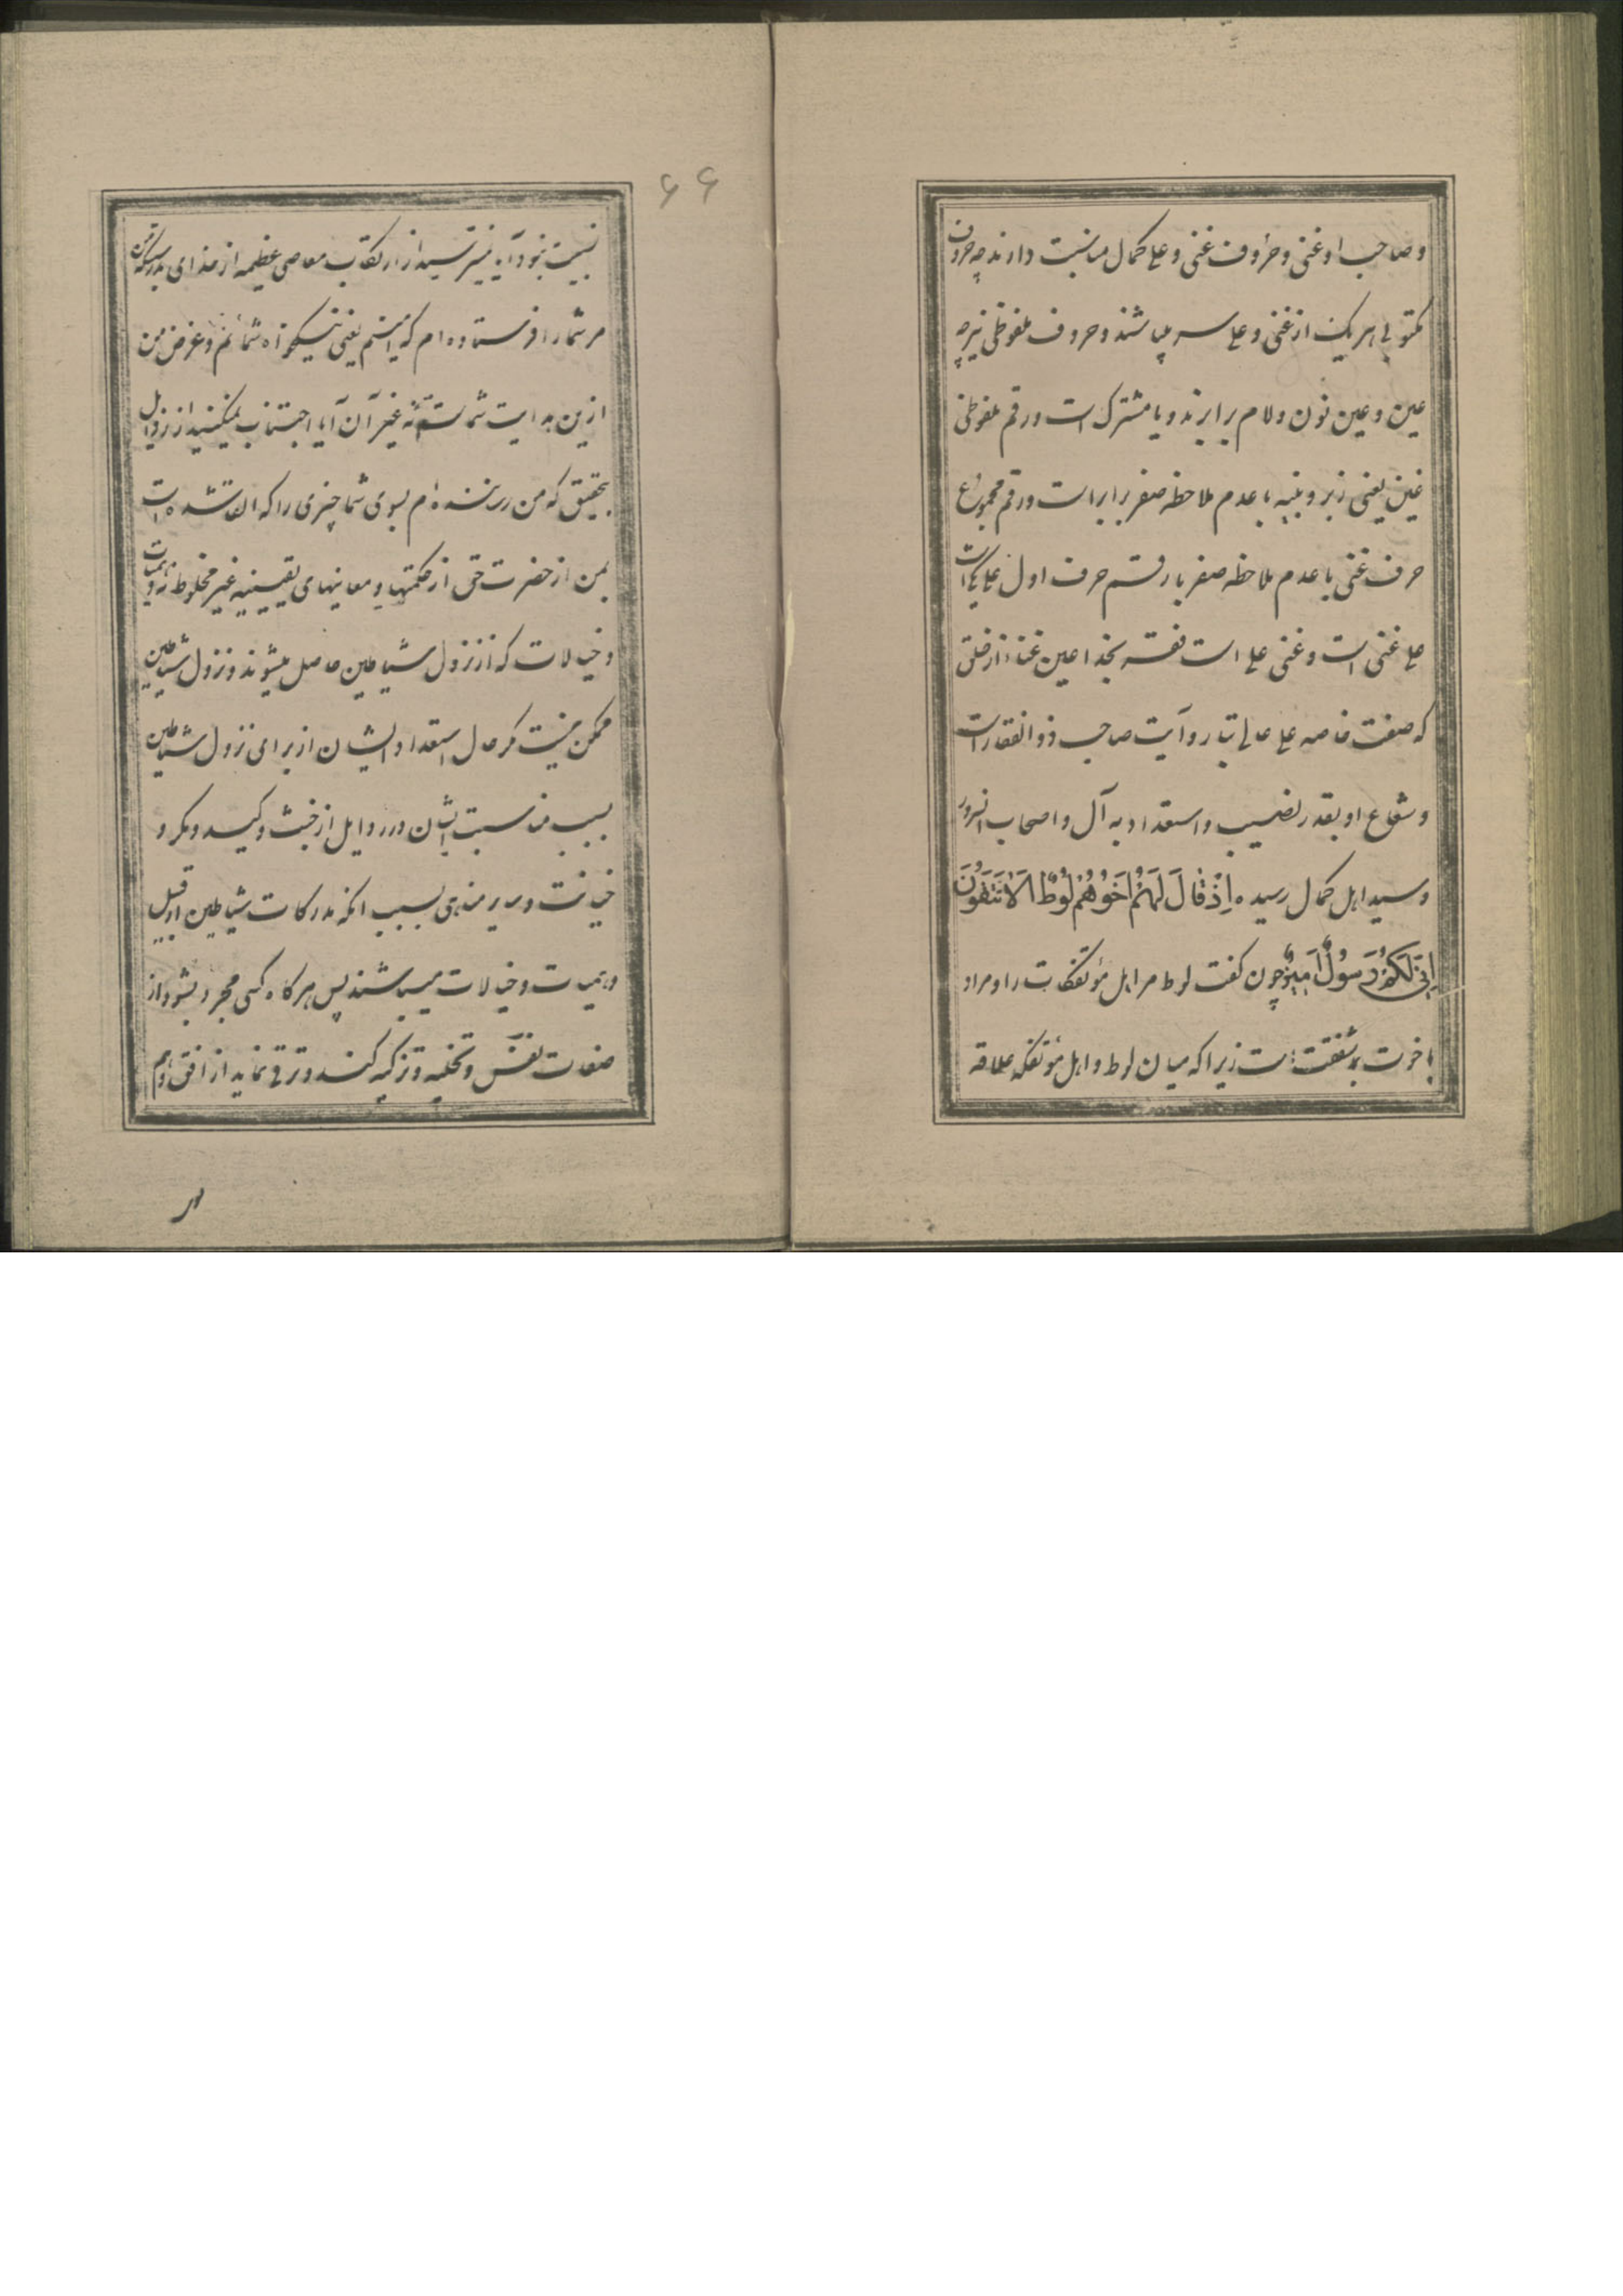 و صاحب او غنی و حروف غنی و علی کمال مناسبت دارند چه حروف
مکتوبی هر یک از غنی و علی سه میباشند و حروف ملفوظی نیز چه
عین و غین نون و لام برابرند و یا مشترک است و رقم ملفوظی
غین یعنی زبر و بینه با عدم ملاحظه صفر برابر است و رقم مجموع
حرف غنی با عدم ملاحظه صفر با رقم حرف اول علی یکی است
علی غنی است و غنی علی است نفسه بخدا عین غنا از خلق
که صفت خاصه علی عالی تبار و آیت صاحب ذوالفقار است
و شعاع او بقدر نصیب و استعداد به آل و اصحاب آنسرور
و سید اهل کمال رسیده اِذْ قَالَ لَهُمْ اَخُوهُمْ لُوطٌ اَلَا تَتَّقُونَ
اِنِّی لَکُمْ رَسُولٌ اَمِینٌ چون گفت لوط مر اهل مؤتفکات را و مراد
باخوت شفقت است زیرا که میان لوط و اهل مؤتفکه علاقه
۶۶
نسبت نبود آیا نمیترسید از ارتکاب معاصی عظیمه از خدای بدرستیکه من
مر شما را فرستاده ام که امینم یعنی نیکخواه شمایم و غرض من
ازین هدایت شماست نه غیر آن آیا اجتناب نمیکنید از رذایل
بتحقیق که من رساننده ام بسوی شما چیزی را که القا شده است
بمن از حضرت حق از حکمتها و معانیهای یقینیه غیر مخلوط بوهمیات
و خیالات که از نزول شیاطین حاصل میشوند و نزول شیاطین
ممکن نیست مگر حال استعداد ایشان از برای نزول شیاطین
بسبب مناسبت ایشان در رذایل از خبث و کید و مکر و
خیانت و سایر مناهی بسبب آنکه مدرکات شیاطین از قبیل
وهمیات و خیالات میباشند پس هر گاه کسی مجرد بشود از
صفات نفس و تخلیه و تزکیه کند و ترقی نماید از افق وهم